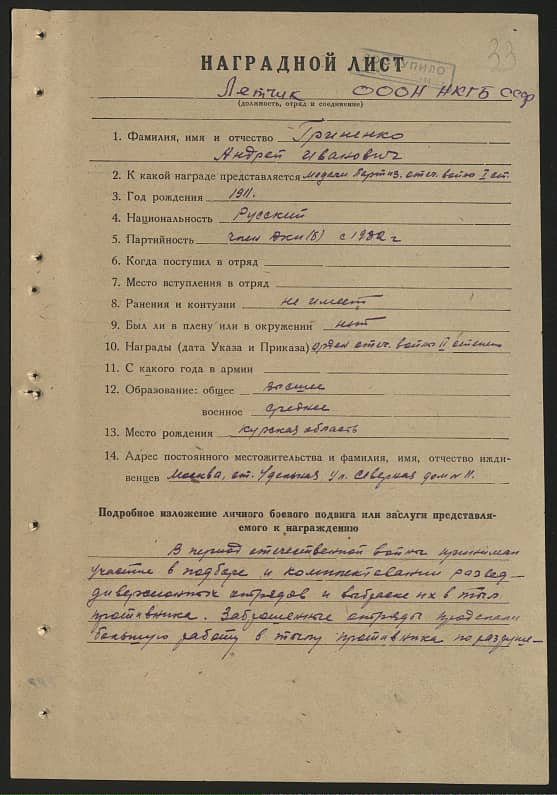 33
НАГРАДНОЙ ЛИСТ
ПОСТУПИЛО
Летчик ОООН НКГБ СССР
(должность, отряд и соединение)
1. Фамилия, имя и отчество Гриненко
Андрей Иванович
2. К какой награде представляется медали Партиз. отеч. войны I ст.
3. Год рождения 1911.
4. Национальность Русский
5. Партийность член ВКП(б) с 1932 г
6. Когда поступил в отряд
7. Место вступления в отряд
8. Ранения и контузии не имеет
9. Был ли в плену или в окружении нет
10. Награды (дата Указа и Приказа) орден отеч. войны II степени
11. С какого года в армии
12. Образование: общее высшее
военное среднее
13. Место рождения Курская область
14. Адрес постоянного местожительства и фамилия, имя, отчество ижди-
венцев Москва, ст. Удельная ул. Северная дом № 11.
Подробное изложение личного боевого подвига или заслуги представля-
емого к награждению
В период отечественной войны принимал
участие в подборе и комплектовании развед-
диверсионных отрядов и выброске их в тыл
противника. Заброшенные отряды проделали
большую работу в тылу противника по разруше-